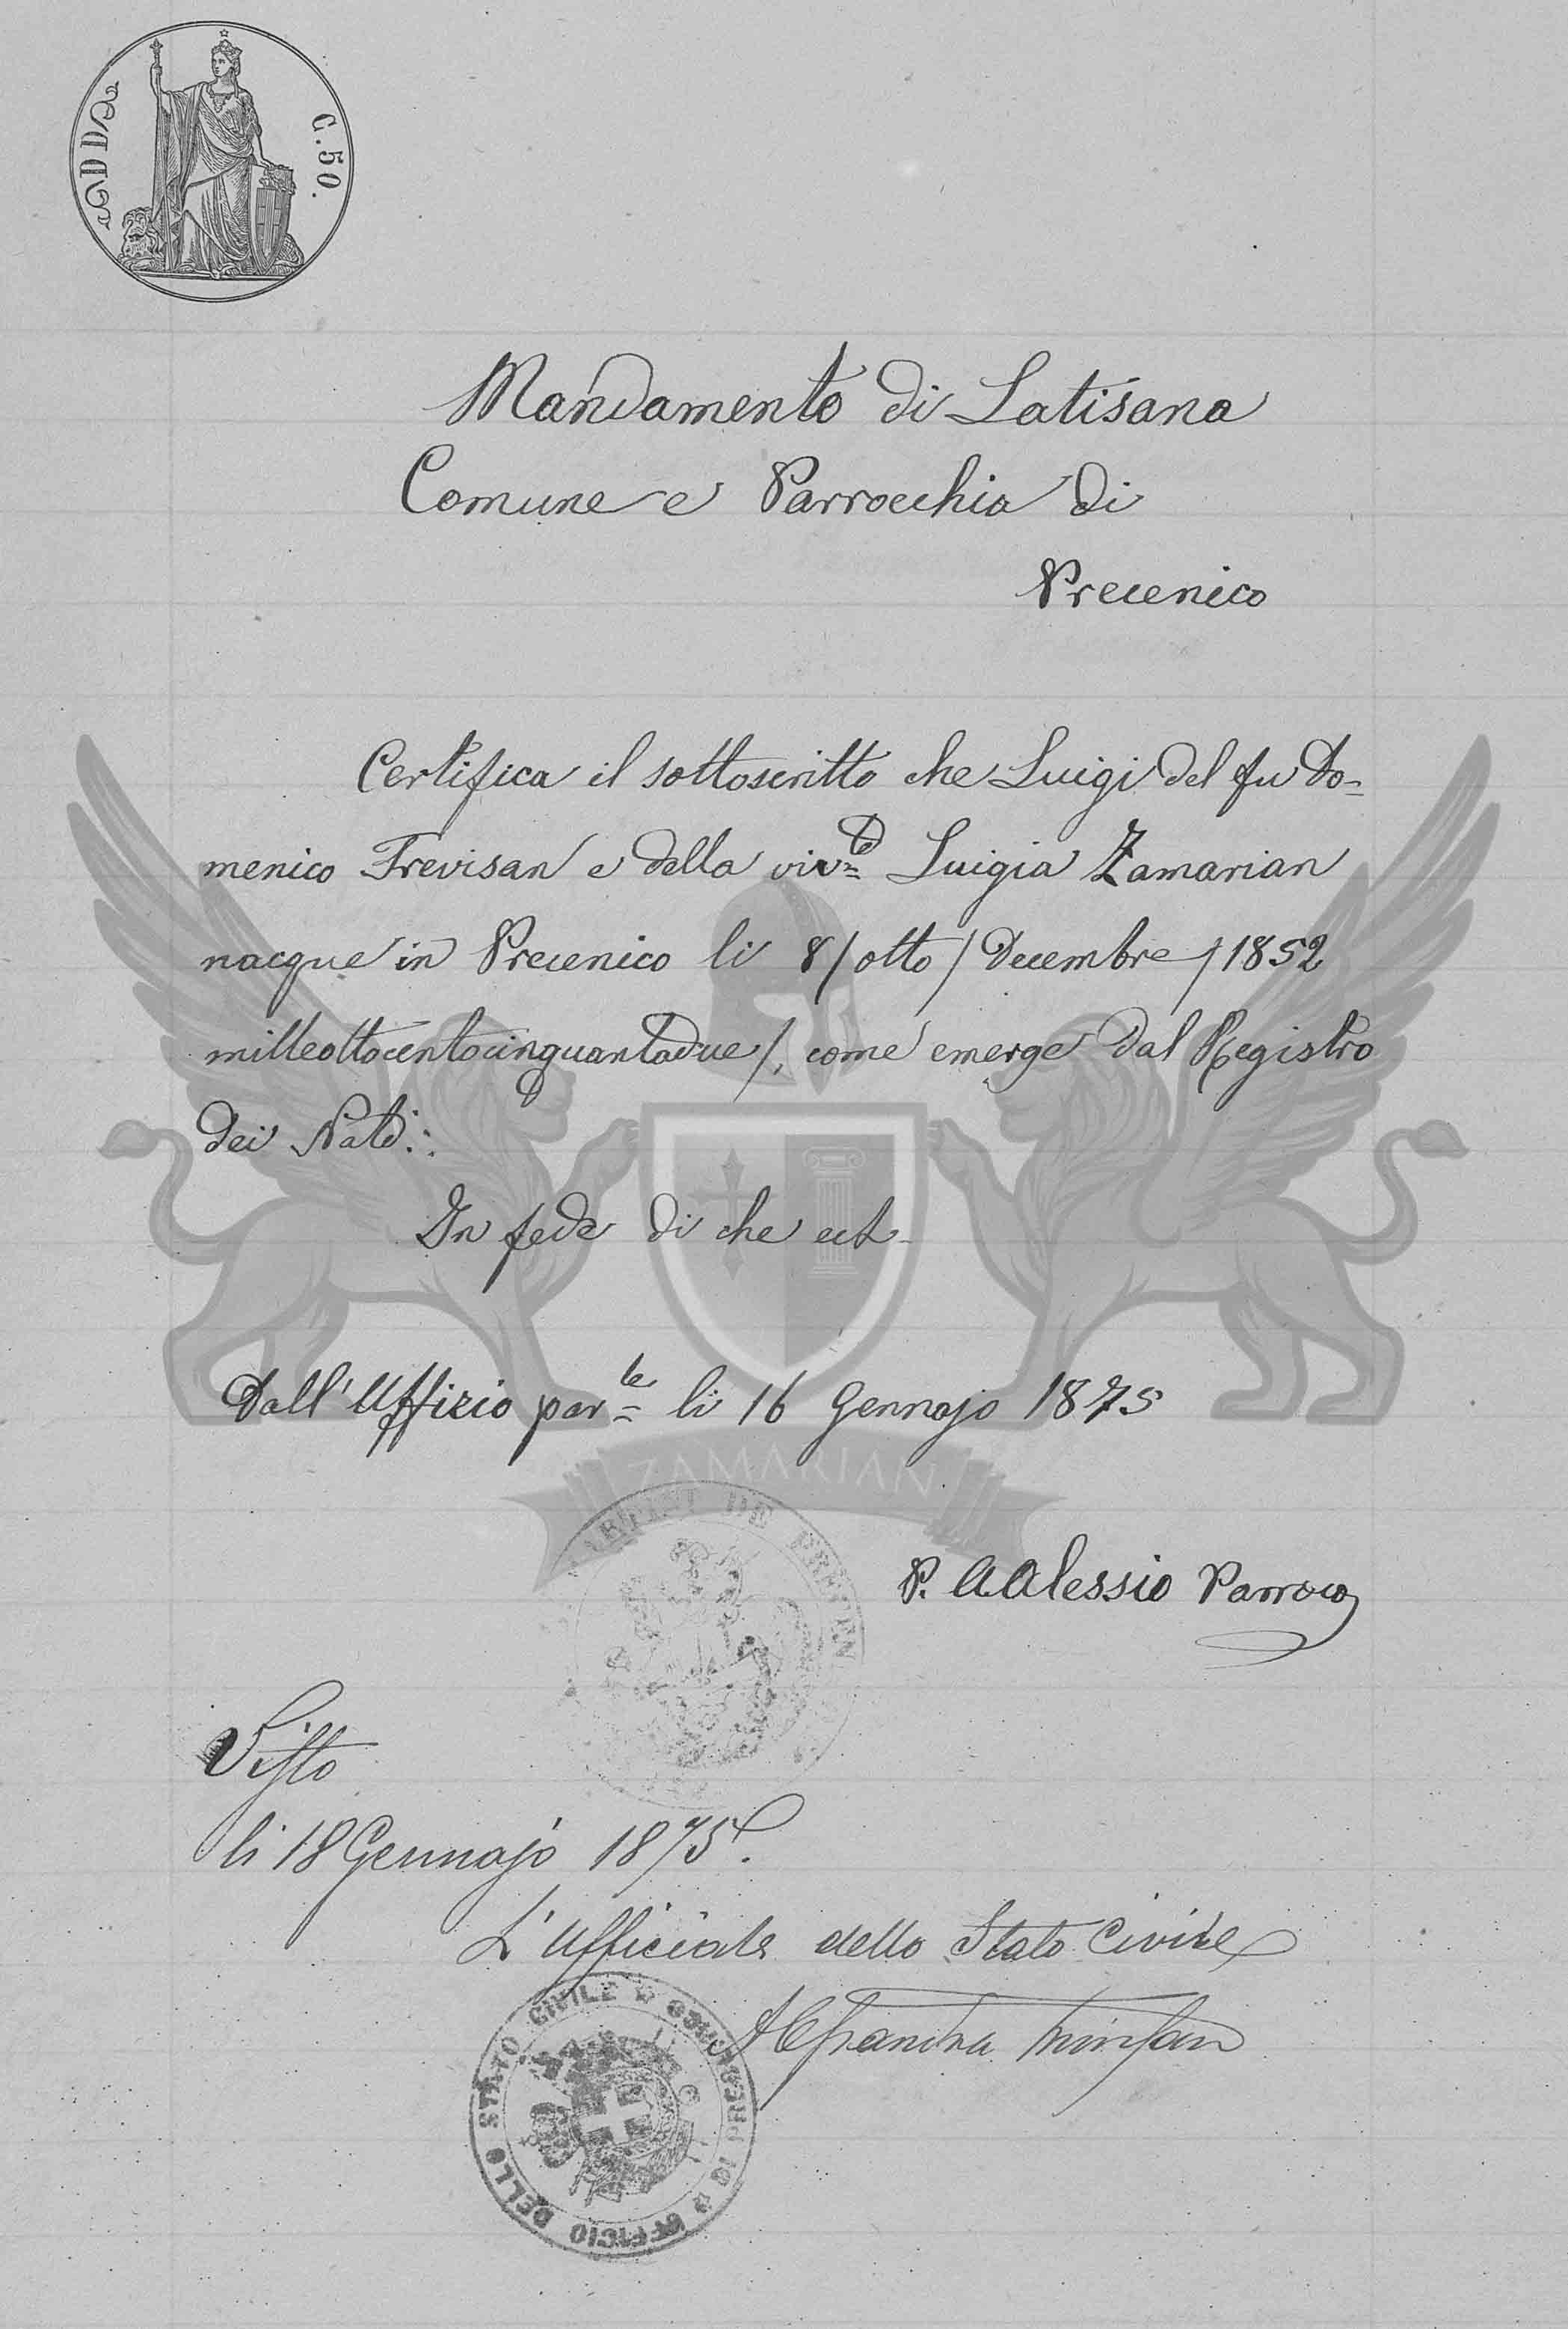 C. 50.
Mandamento di Latisana
Comune e Parrocchia di
Precenico
Certifica il sottoscritto che Luigi del fu Do=
menico Trevisan e della viv.te Luigia Zamarian
nacque in Precenico li 8/otto/Decembre/1852
milleottocentocinquantadue/, come emerge dal Registro
dei Nati.:
In fede di che ect.
Dall'Uffizio par.le li 16 Gennajo 1875
ZAMARIAN
DE PRECEN
P. A. Alessio Parroco
Visto
li 18 Gennajo 1875.
L'Ufficiale dello Stato Civile
UFFICIO DELLO STATO CIVILE
DI PRECENICCO